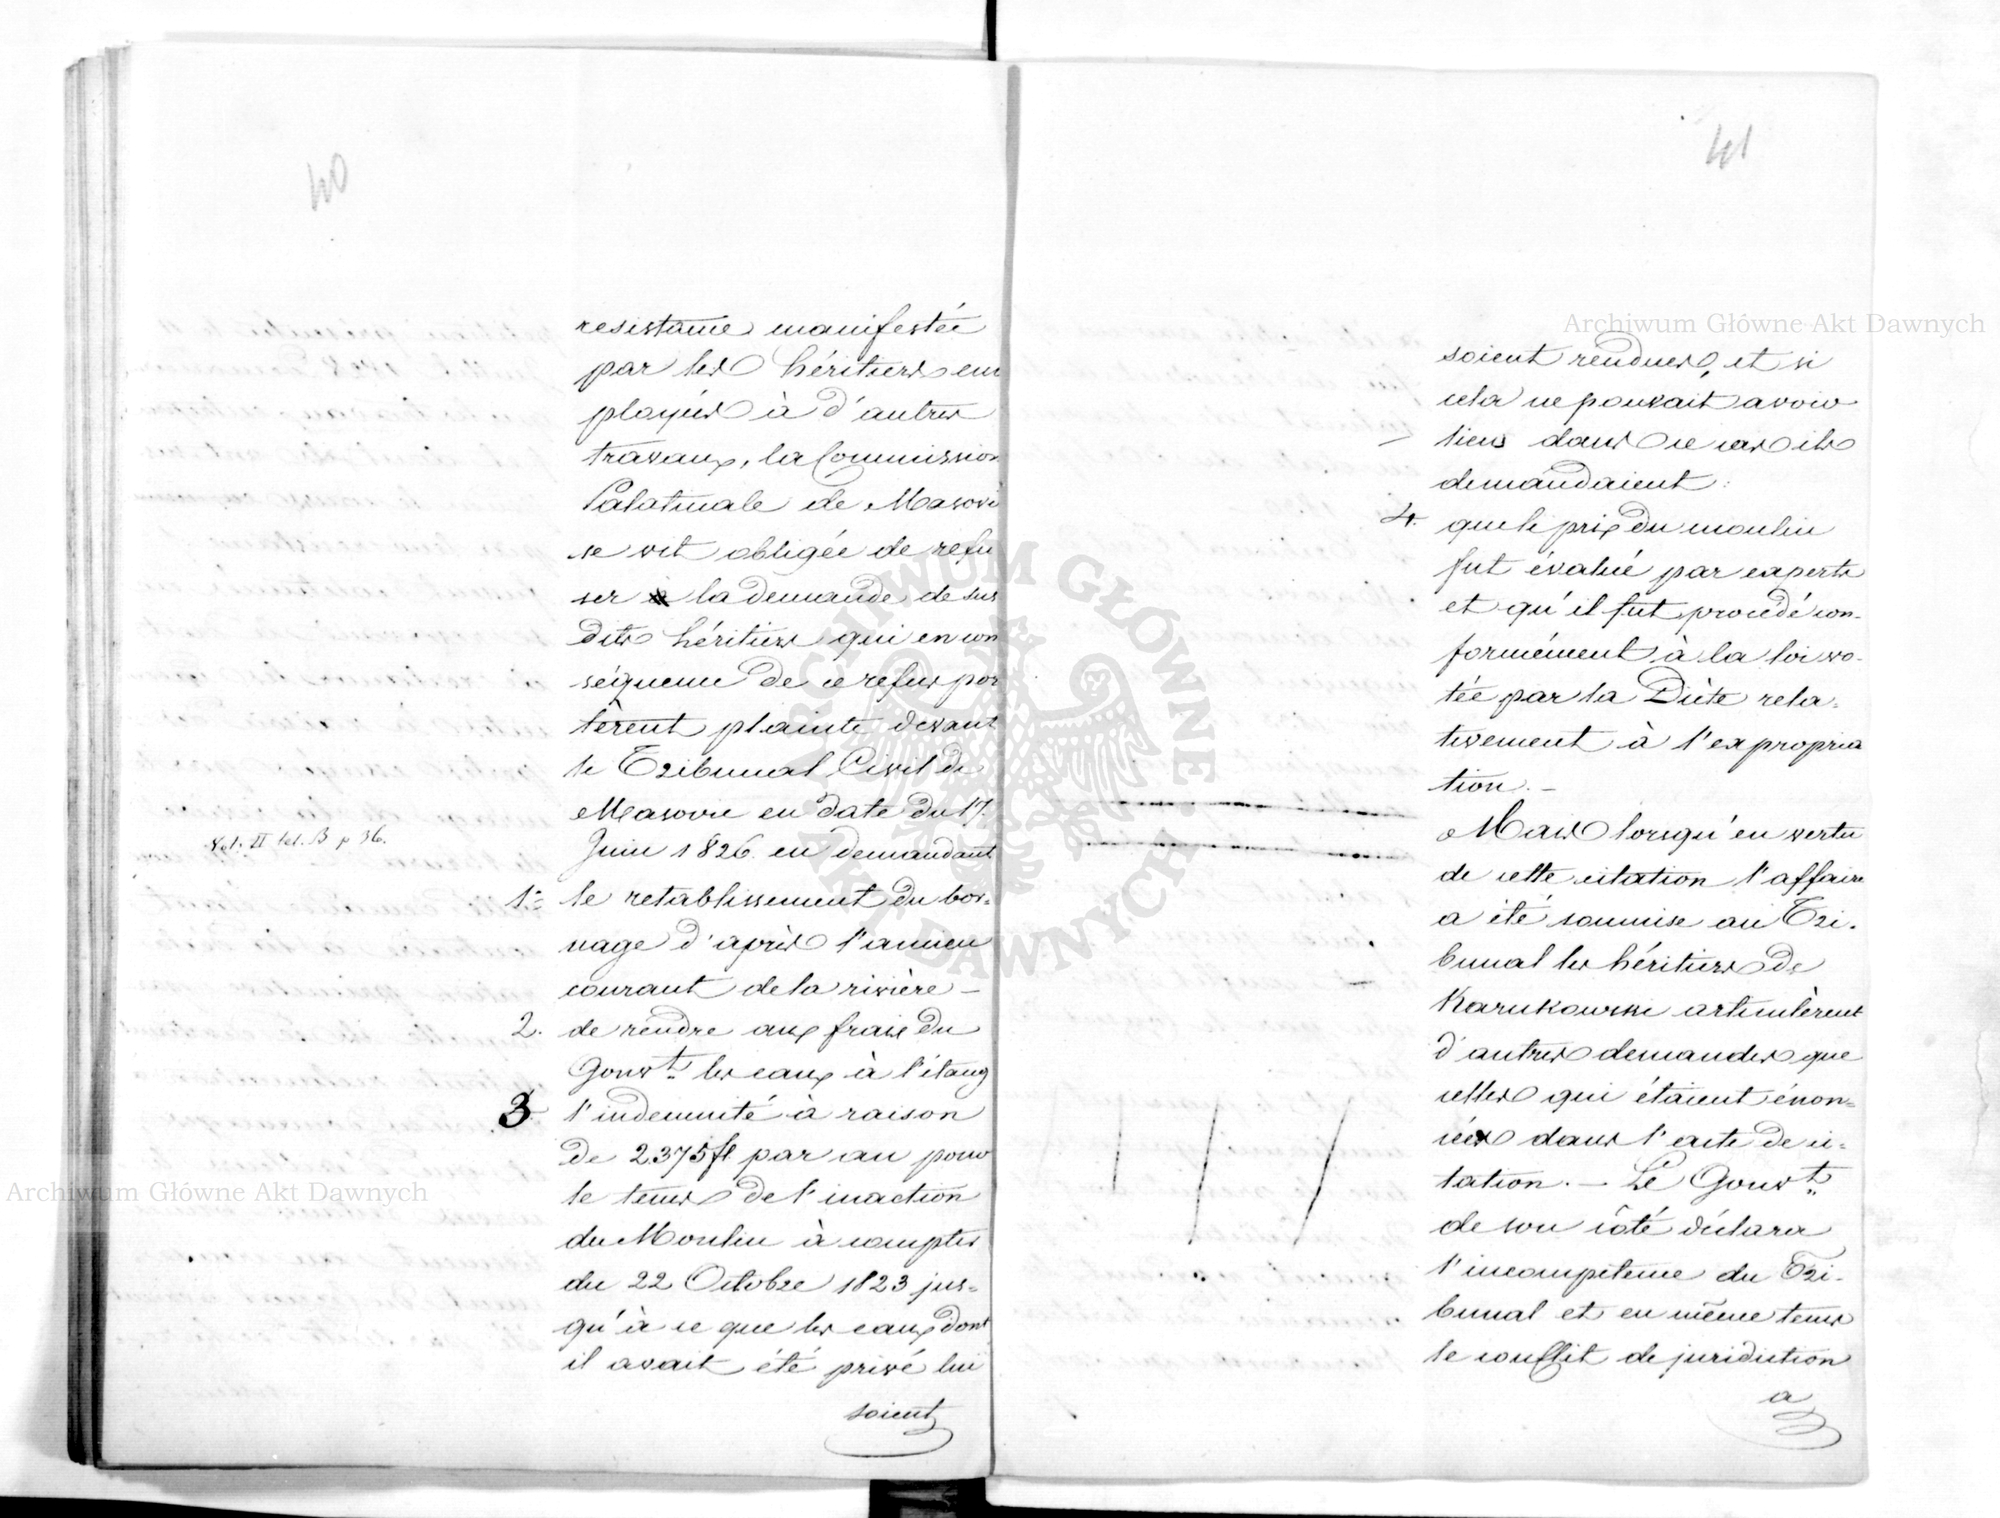 40
resistance manifestée
par les héritiers em
ployés à d'autres
travaux, la Commission
Palatinale de Masovi
se vit obligée de refu
ser la demande de sus
dits héritiers qui en con
séquence de ce refus por
tèrent plainte devant
le Tribunal Civil de
Masovie en date du 17.
Vol. II lit. B p 36.
Juin 1826 en demandant
1.- le retablissement du bor-
nage d'après l'ancien
courant de la rivière -
2. de rendre aux frais du
Gouvt. les eaux à l'étang
3 l'indemnité à raison
de 2375 fl par an pour
le tems de l'inaction
du Moulin à compter
du 22 Octobre 1823 jus-
qu'à ce que les eaux dont
il avait été privé lui
soient
41
soient rendues, et si
cela ne pouvait avoir
- lieu dans ce cas ils
demandaient:
4. que le prix du moulin
fut évalué par experts
et qu'il fut procédé con-
formément à la loi vo-
tée par la Diète rela-
tivement à l'expropria
tion. -
Mais lorsqu'en vertu
de cette citation l'affaire
a été soumise au Tri-
bunal les héritiers de
Karukowski articulèrent
d'autres demandes que
celles qui étaient énon-
cées dans l'acte de ci-
tation. - Le Gouvt.
de son côté déclara
l'incompetence du Tri-
bunal et en même tems
le conflit de juridiction
a
Archiwum Główne Akt Dawnych
Archiwum Główne Akt Dawnych
ARCHIWUM GŁÓWNE AKT DAWNYCH